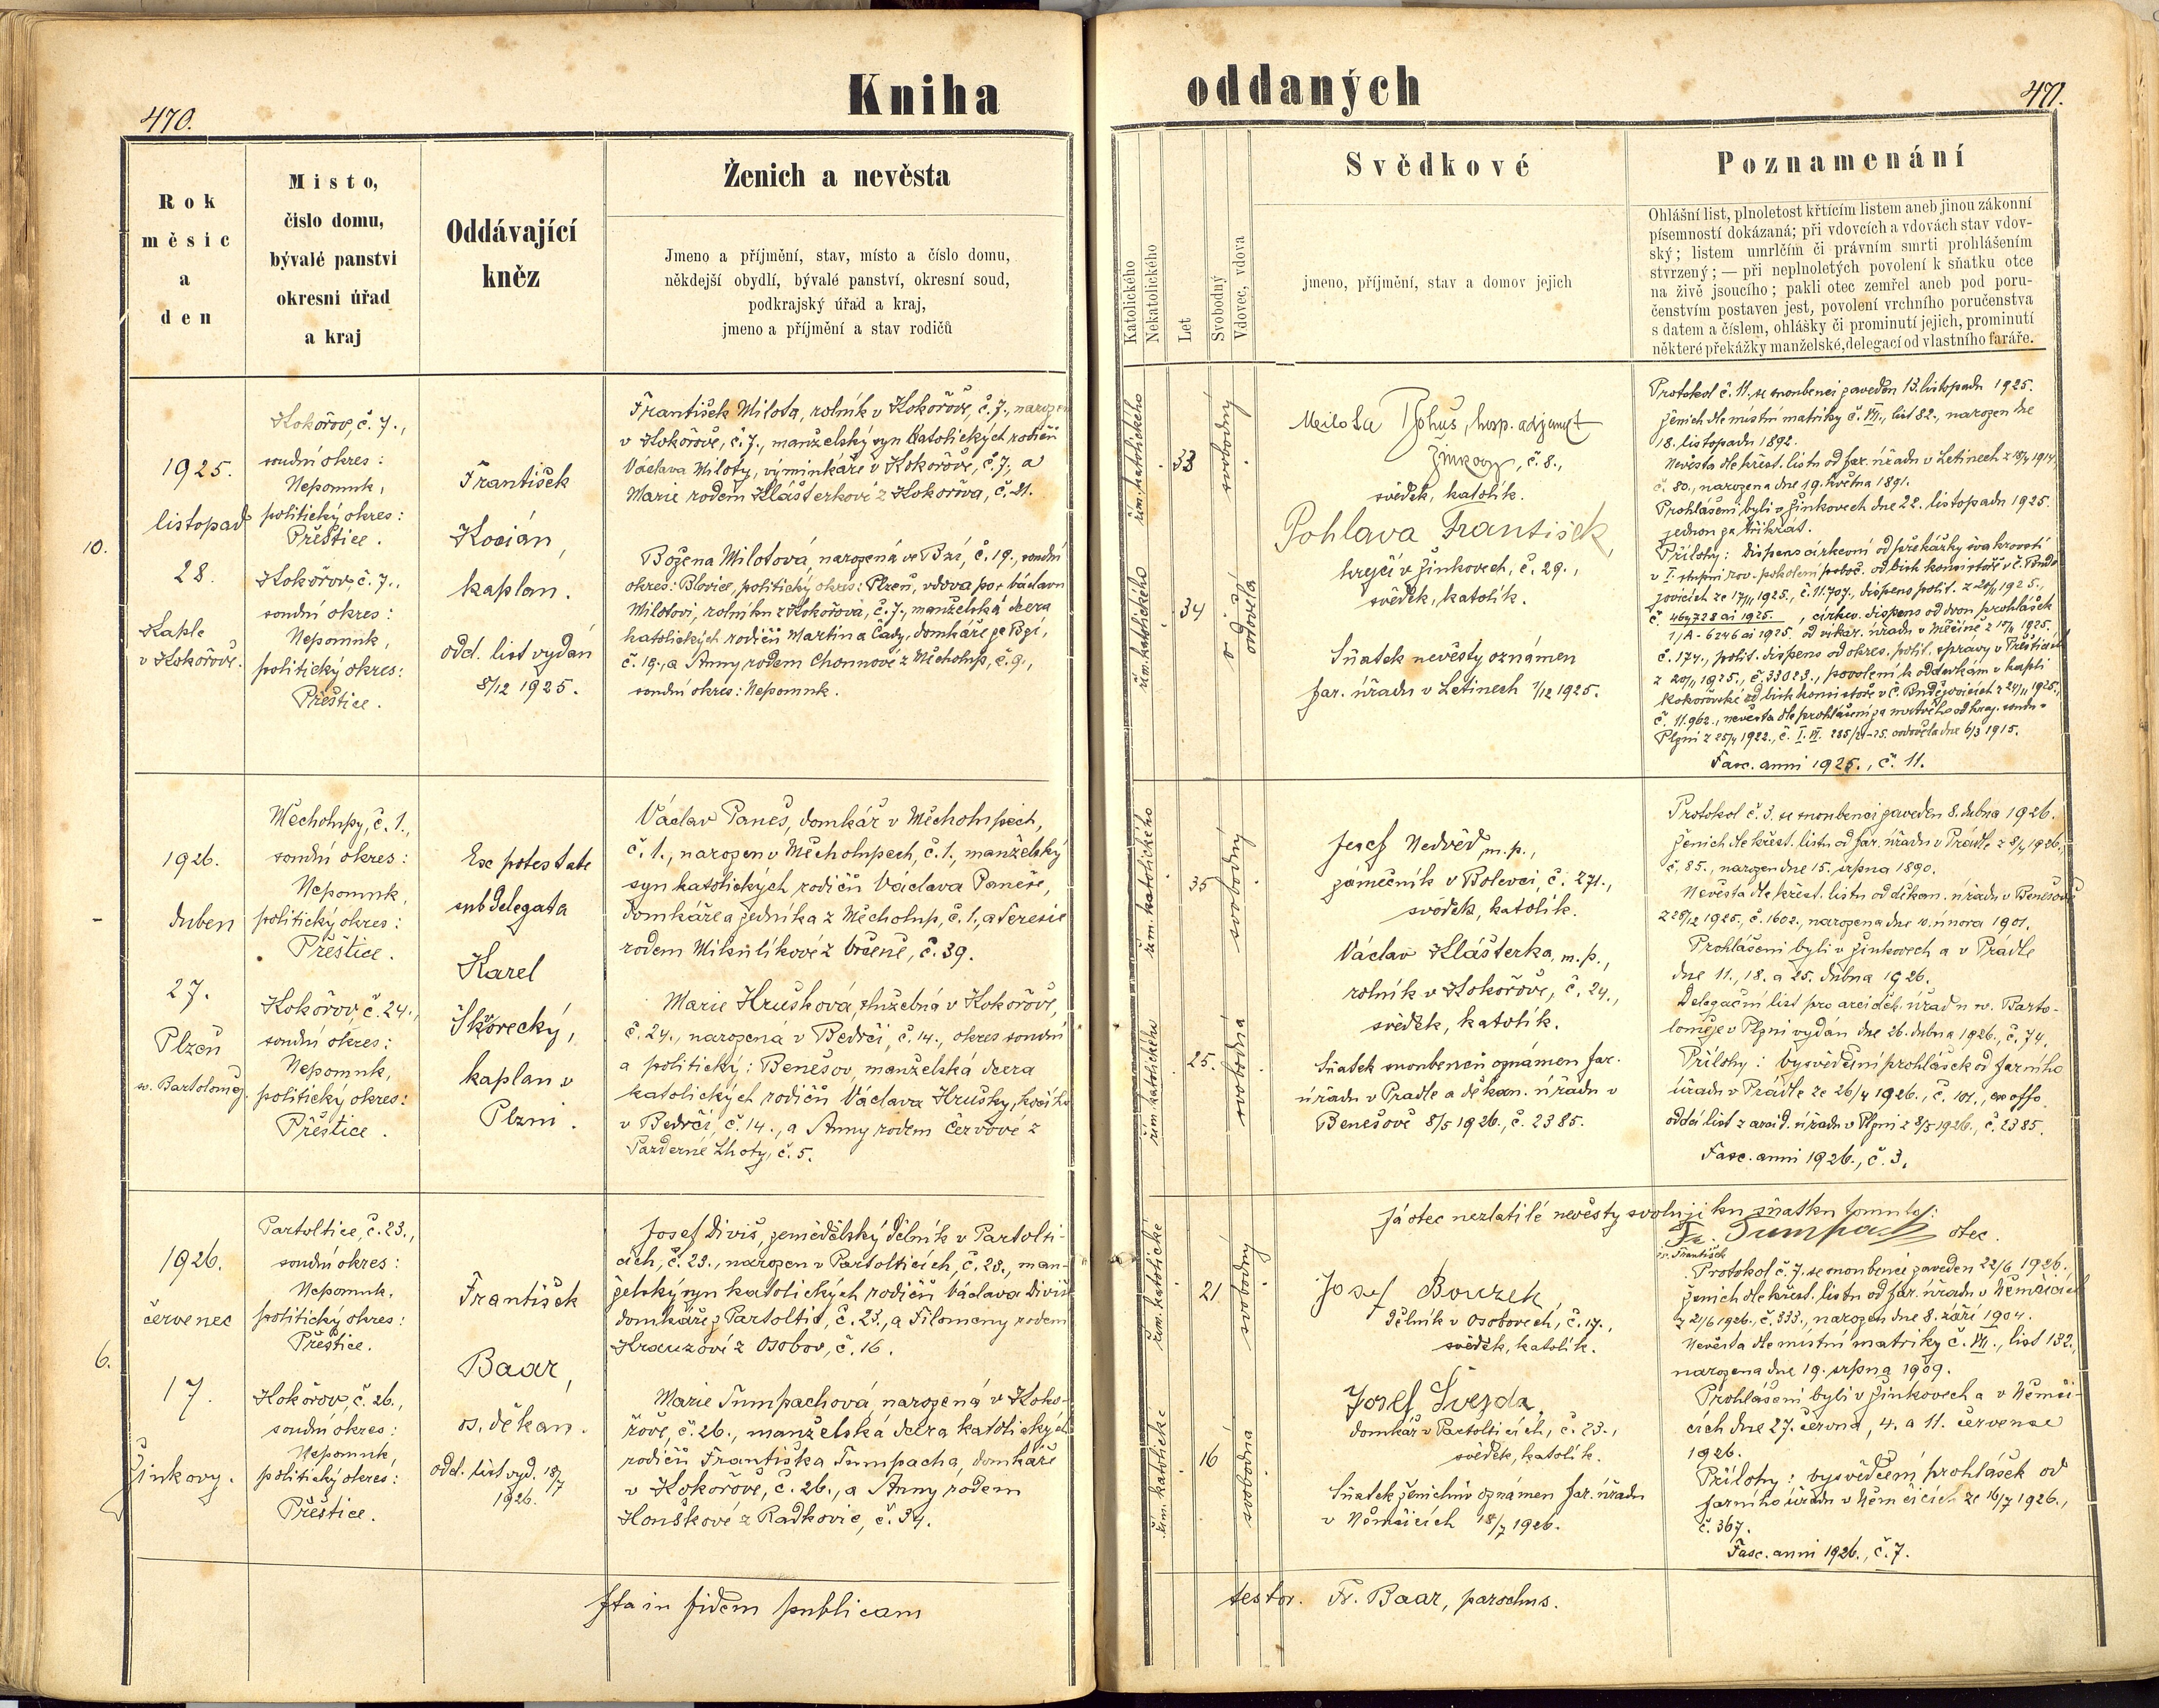 470.
Kniha
oddaných
471.
Rok
měsíc
a
den
Místo,
číslo domu,
bývalé panství
okresní úřad
a kraj
Oddávající
kněz
Ženich a nevěsta
Jmeno a příjmění, stav, místo a číslo domu,
někdejší obydlí, bývalé panství, okresní soud,
podkrajský úřad a kraj,
jmeno a příjmění a stav rodičů
Katolického
Nekatolického
Let
Svobodný
Vdovec, vdova
Svědkové
jmeno, příjmění, stav a domov jejich
Poznamenání
Ohlášní list, plnoletost křtícím listem aneb jinou zákonní
písemností dokázaná; při vdovcích a vdovách stav vdov-
ský; listem umrlčím či právním smrti prohlášením
stvrzený; — při neplnoletých povolení k sňatku otce
na živě jsoucího; pakli otec zemřel aneb pod poru-
čenstvím postaven jest, povolení vrchního poručenstva
s datem a číslem, ohlášky či prominutí jejich, prominutí
některé překážky manželské, delegací od vlastního faráře.
10.
1925.
listopad
28.
Kaple
v Kokořově.
Kokořov, č. 7.,
soudní okres:
Nepomuk,
politický okres:
Přeštice.
Kokořov, č. 7.,
soudní okres:
Nepomuk,
politický okres:
Přeštice.
František
Kocián,
kaplan.
odd. list vydán
8/12 1925.
František Milota, rolník v Kokořově, č. 7., narozen
v Kokořově, č. 7., manželský syn katolických rodičů
Václava Miloty, výminkáře v Kokořově, č. 7., a
Marie rodem Klášterkové z Kokořova, č. 21.
Božena Milotová, narozená ve Bzí, č. 19., soudní
okres: Blovice, politický okres: Plzeň, vdova po + Václavu
Milotovi, rolníku z Kokořova, č. 7., manželská dcera
katolických rodičů Martina Čady, domkáře ze Bzí,
č. 19., a Anny rodem Chounové z Měcholup, č. 9.,
soudní okres: Nepomuk.
řím. katolického
33
svobodný
řím. katolického
34
ovdověla
Milota Bohuš, hosp. adjunkt
Žinkovy, č. 8.,
svědek, katolík.
Pohlava František,
krejčí v Žinkovech, č. 29.,
svědek, katolík.
Sňatek nevěsty oznámen
far. úřadu v Letinech 1/12 1925.
Protokol č. 11. se snoubenci zaveden 13. listopadu 1925.
Ženich dle místní matriky č. VII., list 82., narozen dne
18. listopadu 1892.
Nevěsta dle křest. listu od far. úřadu v Letinech z 18/4 1914,
č. 80., narozena dne 19. května 1891.
Prohlášeni byli v Žinkovech dne 22. listopadu 1925.
jednou za třikrát.
Přílohy: dispens církevní od překážky švakrovství
v I. stupni rov. pokolení poboč. od bisk. konsistoře v Č. Budě-
jovicích ze 17/11 1925., č. 11.707., dispens polit. z 20/11 1925.,
č. 464728 ai 1925., církev. dispens od dvou prohlášek
1/A - 6246 ai 1925. od vikar. úřadu v Měčíně z 17/11 1925.
č. 174., polit. dispens od okres. polit. správy v Přešticích
z 20/11 1925., č. 33023., povolení k oddavkám v kapli
Kokořovské od bisk. konsistoře v Č. Budějovicích z 24/11 1925.,
č. 11.962., nevěsta dle prohlášení za mrtvého od kraj. soudu v
Plzni z 25/4 1922., č. I. VI. 285/21-25. ovdověla dne 6/3 1915.
Fasc. anni 1925., č. 11.
1926.
duben
27.
Plzeň
sv. Bartoloměj.
Měcholupy, č. 1.,
soudní okres:
Nepomuk,
politický okres:
Přeštice.
Kokořov, č. 24.,
soudní okres:
Nepomuk,
politický okres:
Přeštice.
Exc potestate
subdelegata
Karel
Škorecký,
kaplan v
Plzni.
Václav Paneš, domkář v Měcholupech,
č. 1., narozen v Měcholupech, č. 1., manželský
syn katolických rodičů Václava Paneše,
domkáře a zedníka z Měcholup, č. 1., a Terezie
rodem Mikulíkové z Vrčeně, č. 39.
Marie Hrušková, služebná v Kokořově,
č. 24., narozená v Bedrči, č. 14., okres soudní
a politický: Benešov, manželská dcera
katolických rodičů Václava Hrušky, kočího
v Bedrči, č. 14., a Anny rodem Červové z
Pazderné Lhoty, č. 5.
řím. katolického
35
svobodný
řím. katolického
25.
svobodná
Josef Nedvěd, m. p.,
zámečník v Bolevci, č. 271.,
svědek, katolík.
Václav Klášterka, m. p.,
rolník v Kokořově, č. 24.,
svědek, katolík.
Sňatek snoubenců oznámen far.
úřadu v Prádle a děkan. úřadu v
Benešově 8/5 1926., č. 2385.
Protokol č. 3. se snoubenci zaveden 8. dubna 1926.
Ženich dle křest. listu od far. úřadu v Prádle z 8/4 1926.,
č. 85., narozen dne 15. srpna 1890.
Nevěsta dle křest. listu od děkan. úřadu v Benešově
z 28/12 1925., č. 1602., narozena dne 10. února 1901.
Prohlášeni byli v Žinkovech a v Prádle
dne 11., 18. a 25. dubna 1926.
Delegační list pro arciděk. úřad u sv. Barto-
loměje v Plzni vydán dne 26. dubna 1926., č. 74.
Přílohy: vysvědčení prohlášek od farního
úřadu v Prádle ze 26/4 1926., č. 101., ex offo.
oddací list z arcid. úřadu v Plzni z 8/5 1926., č. 2385.
Fasc. anni 1926., č. 3.
6.
1926.
červenec
17.
Žinkovy.
Partoltice, č. 23.,
soudní okres:
Nepomuk,
politický okres:
Přeštice.
Kokořov, č. 26.,
soudní okres:
Nepomuk,
politický okres:
Přeštice.
František
Baar,
os. děkan.
odd. list vyd. 18/7
1926.
Josef Diviš, zemědělský dělník v Partolti-
cích, č. 23., narozen v Partolticích, č. 23., man-
želský syn katolických rodičů Václava Diviše
domkáře z Partoltic, č. 23., a Filomeny rodem
Krauzové z Osobov, č. 16.
Marie Tumpachová, narozená v Koko-
řově, č. 26., manželská dcera katolických
rodičů Františka Tumpacha, domkáře
v Kokořově, č. 26., a Anny rodem
Honškové z Radkovic, č. 34.
řím. katolické
21
svobodný
řím. katolické
16
svobodná
Já otec nezletilé nevěsty svoluji ku sňatku tomuto:
Fr. Tumpach otec.
František
Josef Bouzek,
dělník v Osobovech, č. 17.,
svědek, katolík.
Josef
domkář v Partolticích, č. 23.,
svědek, katolík.
Sňatek ženichův oznámen far. úřadu
v Němčicích 18/7 1926.
Protokol č. 7. se snoubenci zaveden 22/6 1926.
Ženich dle křest. listu od far. úřadu v Němčicích
z 21/6 1926., č. 333., narozen dne 8. září 1904.
Nevěsta dle místní matriky č. VII., list 132.,
narozena dne 19. srpna 1909.
Prohlášeni byli v Žinkovech a v Němči-
cích dne 27. června, 4. a 11. července
1926.
Přílohy: vysvědčení prohlášek od
farního úřadu v Němčicích ze 16/7 1926.,
č. 367.
Fasc. anni 1926., č. 7.
Ita in fidem publicam
testor. Fr. Baar, parochus.